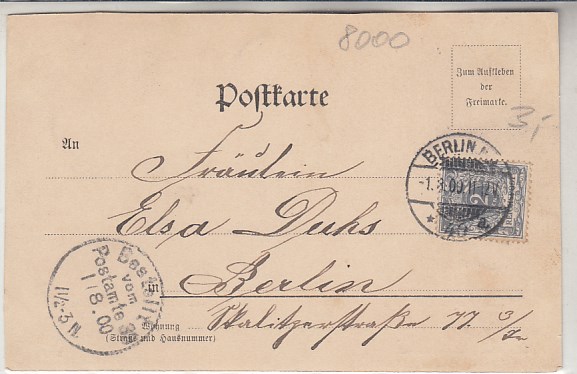 8000
Zum Aufkleben
der
Freimarke.
3,-
Postkarte
An
Fräulein
Elsa Duhs
in Berlin
Wohnung Skalitzerstraße 77
(Straße und Hausnummer)
BERLIN
-1.8.00 11-12V
* a.
2
Bestellt
vom
Postamte
1/8.00
1½-3 N